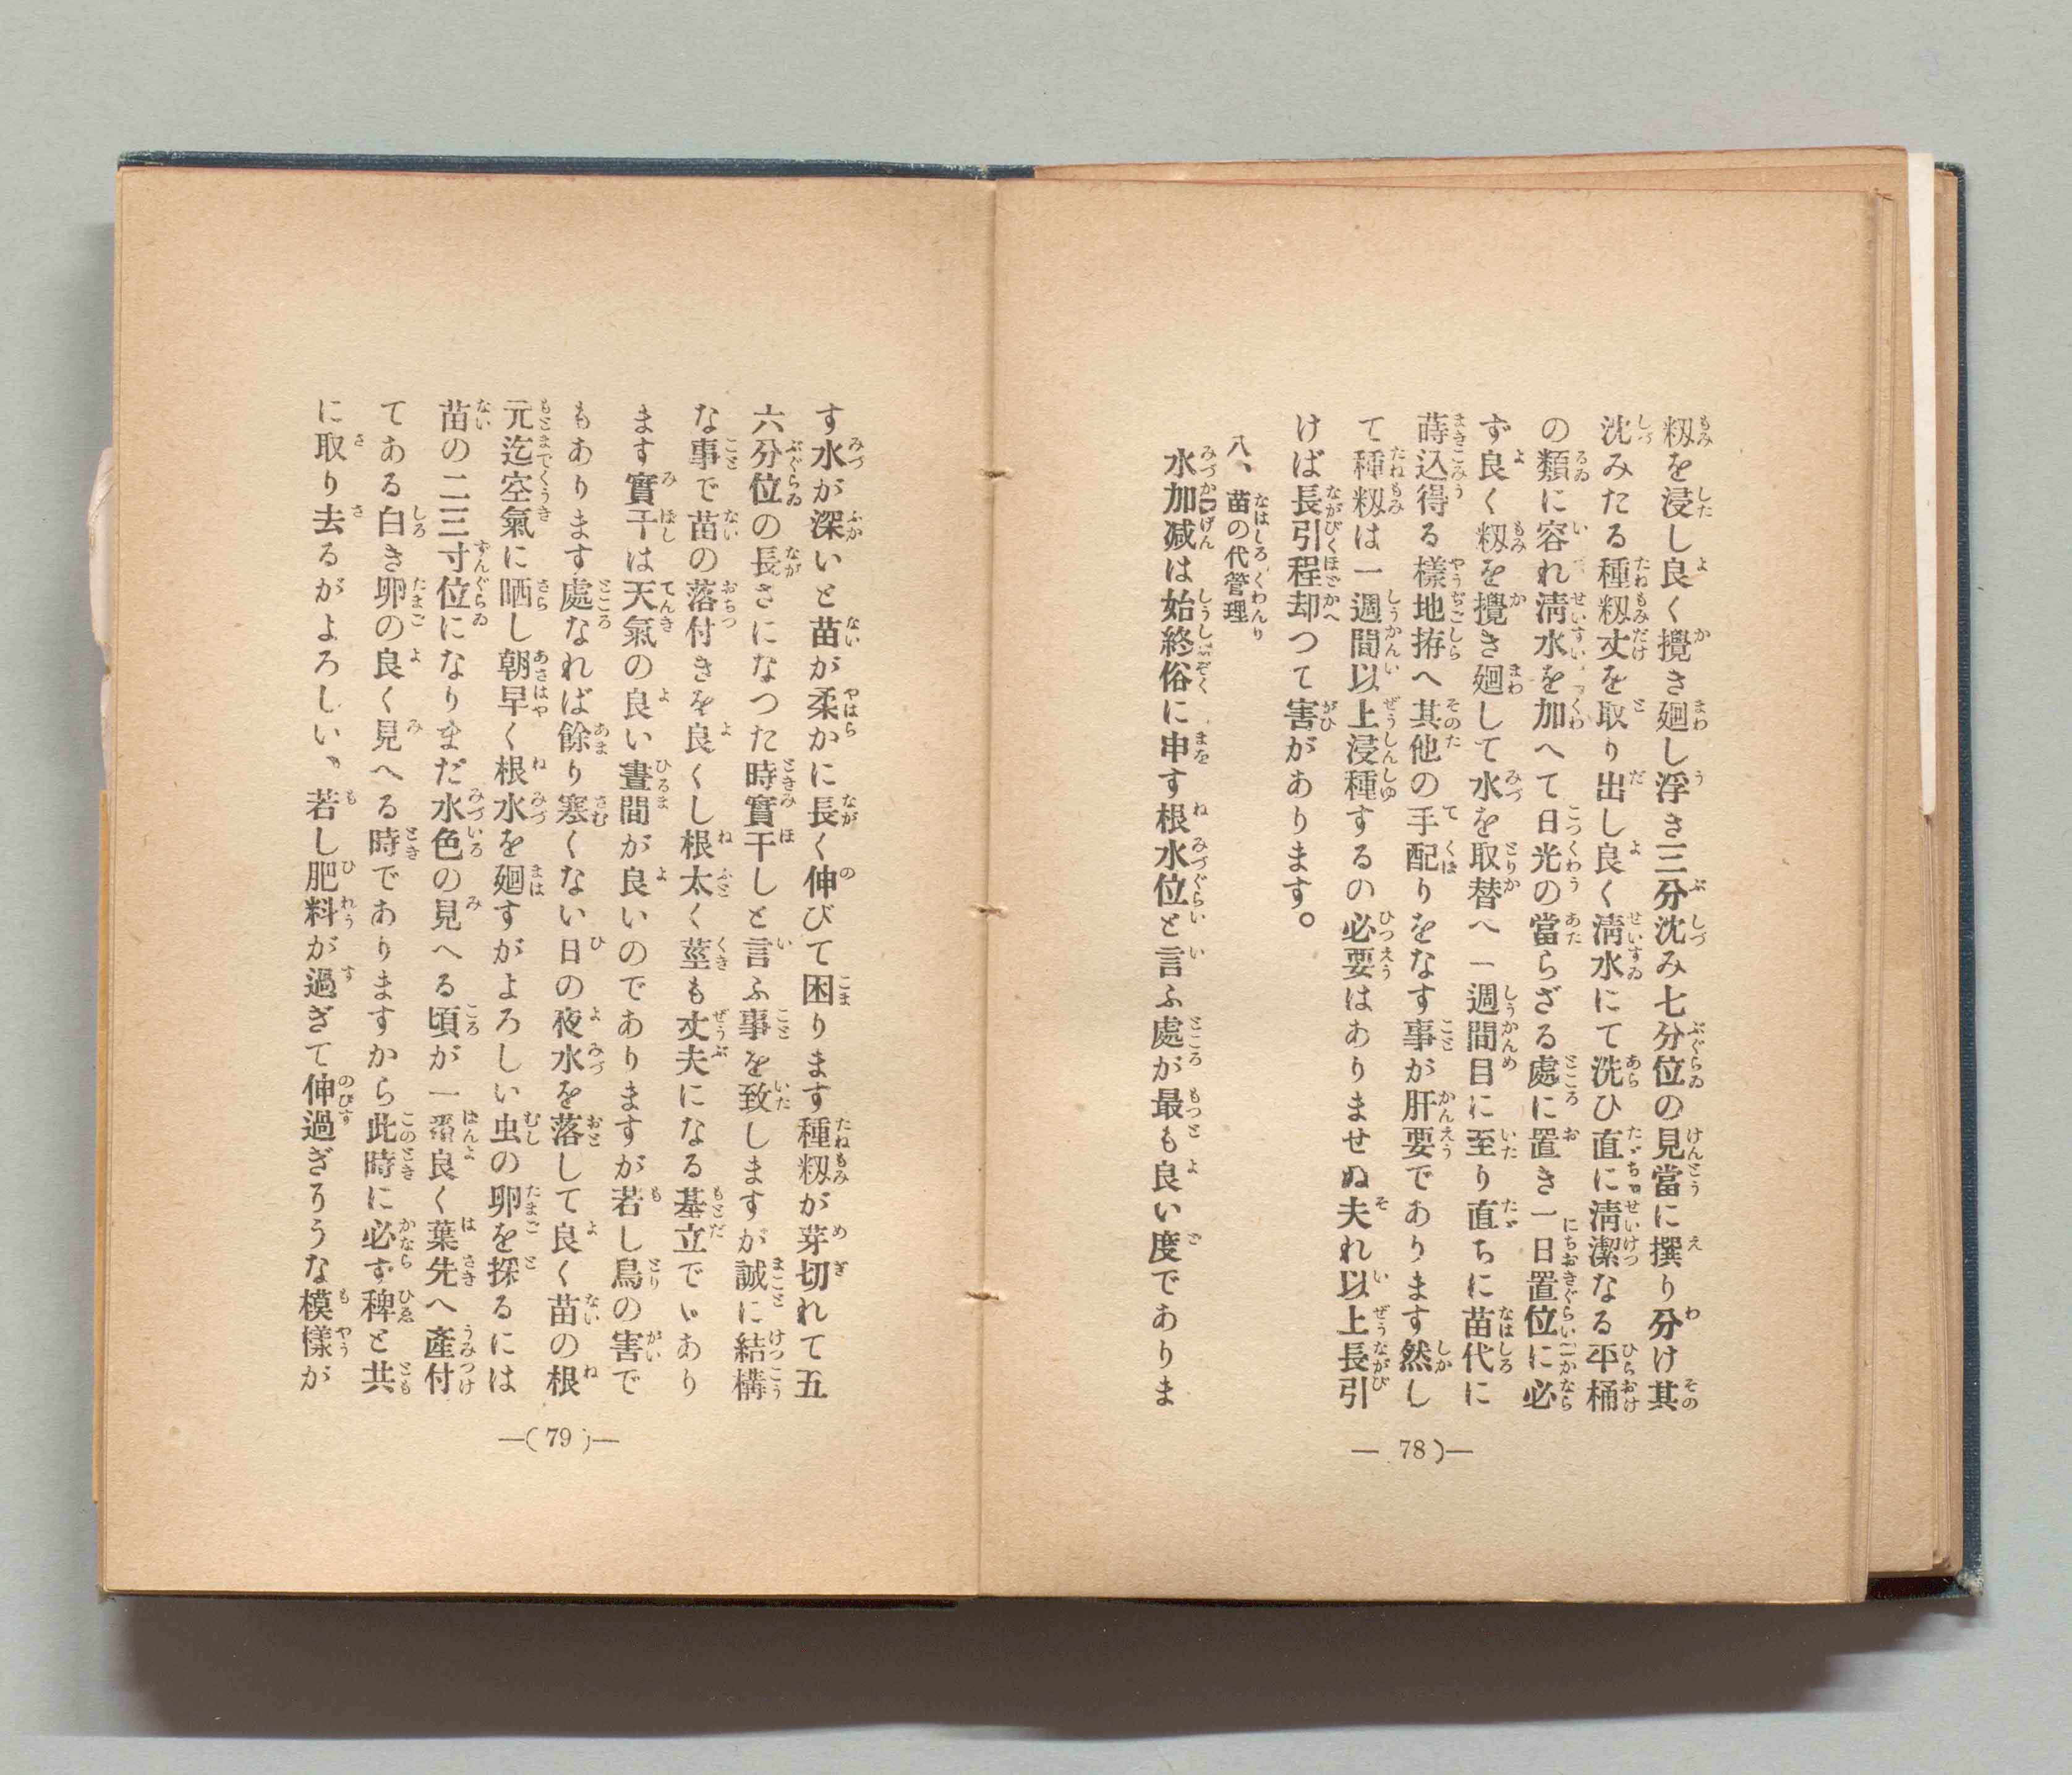 籾を浸し良く攪き廻し浮き三分沈み七分位の見當に撰り分け其
沈みたる種籾丈を取り出し良く淸水にて洗ひ直に淸潔なる平桶
の類に容れ淸水を加へて日光の當らざる處に置き一日置位に必
ず良く籾を攪き廻して水を取替へ一週間目に至り直ちに苗代に
蒔込得る樣地拵へ其他の手配りをなす事が肝要であります然し
て種籾は一週間以上浸種するの必要はありませぬ夫れ以上長引
けば長引程却つて害があります。
八、苗の代管理
水加減は始終俗に申す根水位と言ふ處が最も良い度でありま
―78)―
す水が深いと苗が柔かに長く伸びて困ります種籾が芽切れて五
六分位の長さになつた時實干しと言ふ事を致しますが誠に結構
な事で苗の落付きを良くし根太く莖も丈夫になる基立でゝあり
ます實干は天氣の良い晝間が良いのでありますが若し鳥の害で
もあります處なれば餘り寒くない日の夜水を落して良く苗の根
元迄空氣に晒し朝早く根水を廻すがよろしい虫の卵を探るには
苗の二三寸位になりまだ水色の見へる頃が一番良く葉先へ產付
てある白き卵の良く見へる時でありますから此時に必ず稗と共
に取り去るがよろしい、若し肥料が過ぎて伸過ぎりうな模樣が
―(79)―